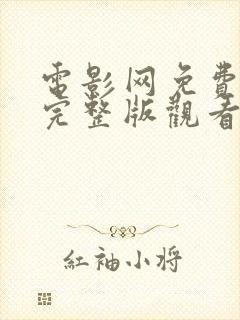 電影网免費
完整版觀看
紅袖小将